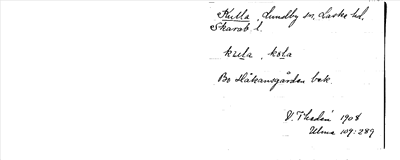 Kulla, Lundby sn, Laske hd,
Skarab. l.
kuLa, koLa
Bo Håkansgården bek.
V. Thedin 1908
Ulma 109:289